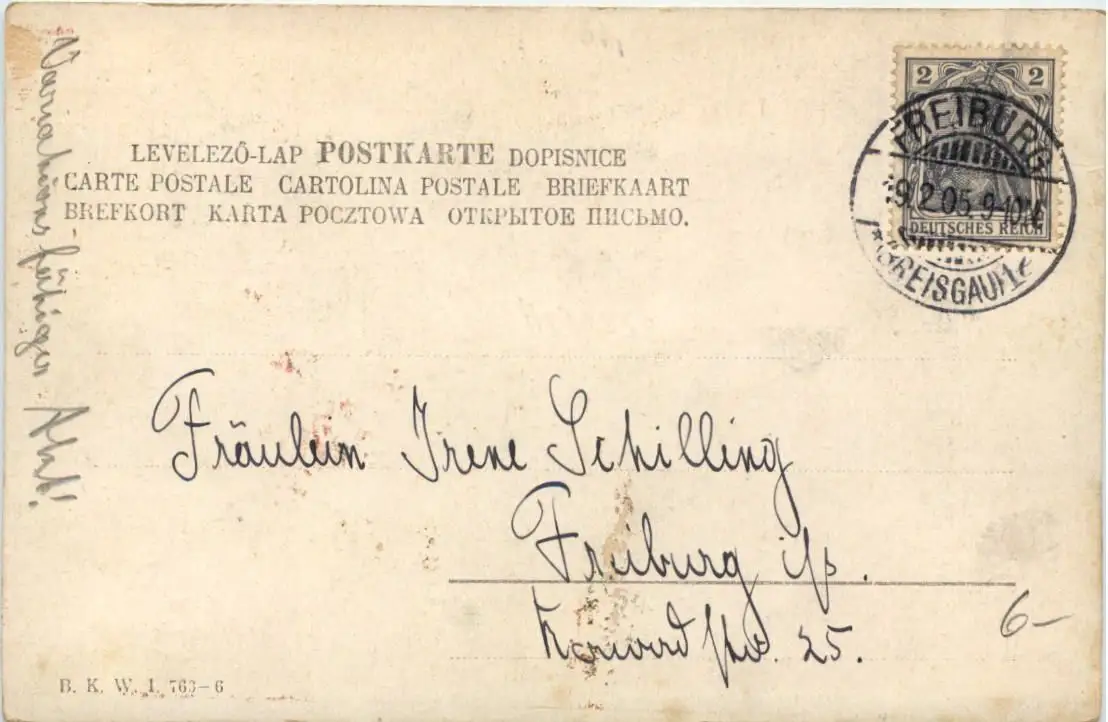 LEVELEZŐ-LAP POSTKARTE DOPISNICE
CARTE POSTALE CARTOLINA POSTALE BRIEFKAART
BREFKORT KARTA POCZTOWA ОТКРЫТОЕ ПИСЬМО.
2 2
DEUTSCHES REICH
FREIBURG
19.2.05.9-10N
BREISGAU
Fräulein Irene Schilling
Freiburg i/B.
25.
6-
B. K. W. I. 763-6
Akt!